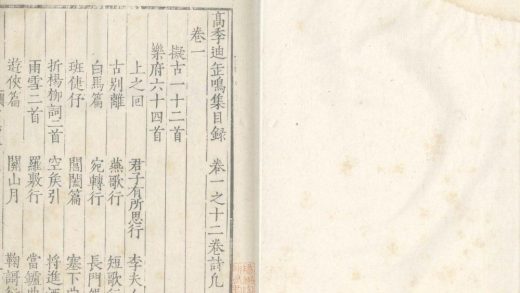 髙季迪缶鳴集目録 卷一之十二卷詩凢
卷一
擬古一十二首
樂府六十四首
上之回 君子有所思行 李夫
古别離 燕歌行 短歌行
白馬篇 宛轉行 長門
班倢伃 閶闔篇 塞下曲
折楊柳詞二首 空矦引 將進酒
雨雪二首 羅敷行 當壚曲
遊俠篇 關山月 鞠歌行